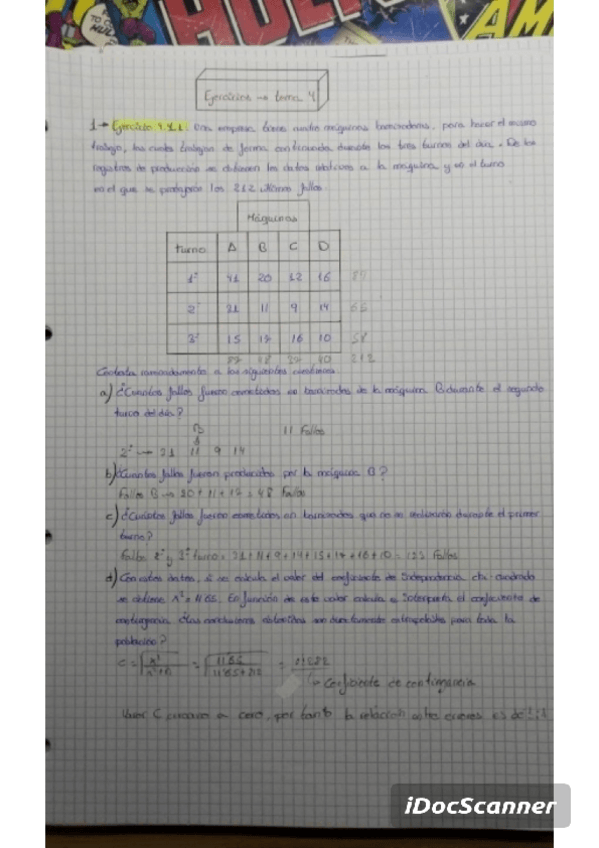 HULK
AM
Ejercicios → tema 4
1→ Ejercicio 4.1.1. Una empresa tiene cuatro máquinas troqueladoras, para hacer el mismo
trabajo, las cuales trabajan de forma continuada durante los tres turnos del día. De los
registros de producción se obtienen los datos relativos a la máquina y en el turno
en el que se produjeron los 212 últimos fallos.
Máquinas
turno A B C D
1º 41 20 12 16 89
2º 21 11 9 14
3º 15 17 16 10 58
48 40 212
Contesta razonadamente a las siguientes cuestiones
a) ¿Cuántos fallos fueron cometidos en de la máquina B durante el segundo
turno del día?
B 11 Fallos
2º → 21 11 9 14
b) ¿Cuántos fallos fueron producidos por la máquina B?
Fallos B → 20 + 11 + 17 = 48 Fallos
c) ¿Cuántos fallos fueron cometidos en que no se realizaron durante el primer
turno?
Fallos 2º y 3º turno = 21 + 11 + 9 + 14 + 15 + 17 + 16 + 10 = Fallos
d) Con estos datos, si se calcula el valor del coeficiente de Independencia chi-cuadrado
se obtiene En función de este valor calcula e Interpreta el coeficiente de
contingencia ¿Las conclusiones obtenidas son directamente extrapolables para toda la
población?
C =
↳ Coeficiente de contingencia
Valor C cercano a cero, por tanto la relación entre es
iDocScanner